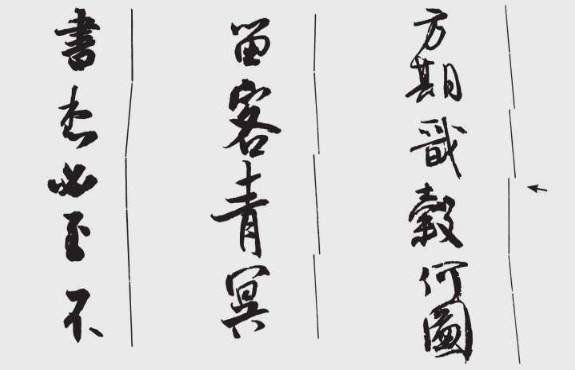 方期戩穀何圖
留客青冥
書必至不